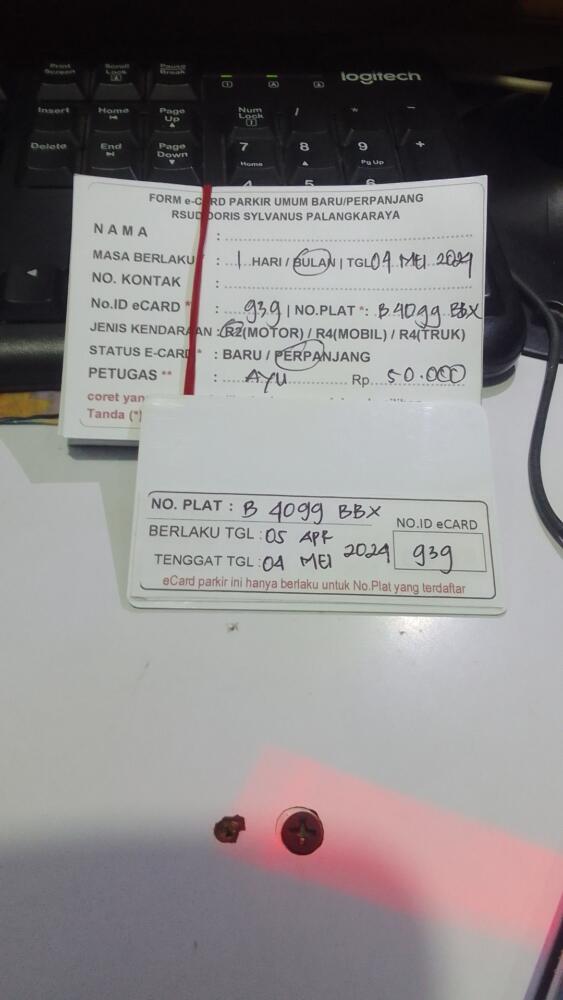 Print Screen
Scroll Lock
Pause Break
logitech
Insert
Home
Page Up
Num Lock
/
*
-
Delete
End
Page Down
7
8
9
+
Home
Pg Up
4
5
6
FORM e-CARD PARKIR UMUM BARU/PERPANJANG
RSUD DORIS SYLVANUS PALANGKARAYA
NAMA :
MASA BERLAKU : 1 HARI / BULAN | TGL 04 MEI 2024
NO. KONTAK :
No.ID eCARD * : 939 | NO.PLAT *: B 4099 BBX
JENIS KENDARAAN : R2(MOTOR) / R4(MOBIL) / R4(TRUK)
STATUS E-CARD * : BARU / PERPANJANG
PETUGAS ** : AYU Rp. 50.000
coret yang
Tanda (*)
NO. PLAT : B 4099 BBX
BERLAKU TGL : 05 APR
NO.ID eCARD
TENGGAT TGL : 04 MEI 2024
939
eCard parkir ini hanya berlaku untuk No.Plat yang terdaftar